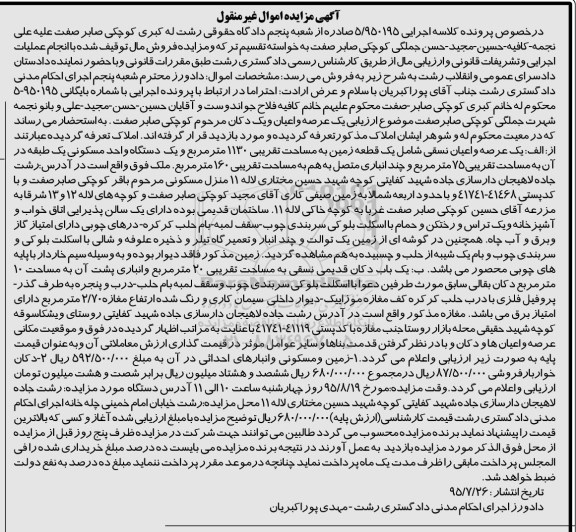 آگهی مزایده اموال غیر منقول
درخصوص پرونده کلاسه اجرایی 5/950195 صادره از شعبه پنجم دادگاه حقوقی رشت له کبری کوچکی صابر صفت علیه علی
نجمه-کافیه-حسین-مجید-حسن جملگی کوچکی صابر صفت به خواسته تقسیم ترکه ومزایده فروش مال توقیف شده باانجام عملیات
اجرایی وتشریفات قانونی وارزیابی مال از طریق کارشناس رسمی دادگستری رشت طبق مقررات قانونی وبا حضور نماینده دادستان
دادسرای عمومی وانقلاب رشت به شرح زیر به فروش می رسد: مشخصات اموال: دادورز محترم شعبه پنجم اجرای احکام مدنی
دادگستری رشت جناب آقای پوراکبریان با سلام و عرض ارادت: احتراما در ارتباط با پرونده اجرایی با شماره بایگانی 950195-5
محکوم له خانم کبری کوچکی صابر-صفت محکوم علیهم خانم کافیه فلاح جواندوست و آقایان حسین-حسن-مجید-علی و بانو نجمه
شهرت جملگی کوچکی صابر صفت موضوع ارزیابی یک عرصه واعیان ویک دکان مرحوم کوچکی صابر صفت . به استحضار می رساند
که در معیت محکوم له و شوهر ایشان املاک مذکور تعرفه گردیده و مورد بازدید قرار گرفته اند. املاک تعرفه گردیده عبارتند
از: الف: یک عرصه واعیان نسقی شامل یک قطعه زمین به مساحت تقریبی 1130 مترمربع و یک دستگاه واحد مسکونی یک طبقه در
آن به مساحت تقریبی 75 مترمربع و چند انباری متصل به هم به مساحت تقریبی 160 مترمربع. ملک فوق واقع است در آدرس:رشت
جاده لاهیجان دارسازی جاده شهید کفایتی کوچه شهید حسین مختاری لاله 11 منزل مسکونی مرحوم باقر کوچکی صابرصفت و با
کدپستی 41468-41741 و با حدود اربعه شمالا به زمین صیفی کاری آقای مجید کوچکی صابر صفت و کوچه های لاله 12 و 13 شرقا به
مزرعه آقای حسین کوچکی صابر صفت غربا به کوچه خاکی لاله 11. ساختمان قدیمی بوده دارای یک سالن پذیرایی اتاق خواب و
آشپزخانه ویک تراس و رختکن و حمام با اسکلت بلوکی سربندی چوب-سقف لمبه-بام حلب کرکره-درهای چوبی دارای امتیاز گاز
وبرق و آب چاه. همچنین در گوشه ای از زمین یک توالت و چند انبار وتعمیر گاه تیلر و ذخیره علوفه و شالی با اسکلت بلوکی و
سربندی چوب و بام یک شیبه از حلب و چسبیده به هم مشاهده گردید. زمین مذکور فاقد دیوار بوده و به وسیله سیم خاردار با پایه
های چوبی محصور می باشد. ب: یک باب دکان قدیمی نسقی به مساحت تقریبی 20 مترمربع وانباری پشت آن به مساحت 10
مترمربع دکان بقالی سابق مورث طرفین دعوا با اسکلت بلوکی سربندی چوب و سقف لمبه بام حلب-درب و پنجره به طرف گذر-
پروفیل فلزی با درب حلب کرکره کف مغازه موزاییک-دیوار داخلی سیمان کاری و رنگ شده ارتفاع مغازه 2/70 مترمربع دارای
امتیاز برق می باشد. مغازه مذکور واقع است در آدرس رشت جاده لاهیجان دارسازی جاده شهید کفایتی روستای ویشکاسوقه
کوچه شهید حقیقی محله بازار روستا جنب مغازه با کدپستی 41119-41741 با عنایت به مراتب اظهار گردیده در فوق و موقعیت مکانی
عرصه واعیان ها و دکان و با در نظر گرفتن قدمت بناها وسایر عوامل موثر در قیمت گذاری ارزش معاملاتی آن و به عنوان قیمت
پایه به صورت زیر ارزیابی واعلام می گردد.1-زمین ومسکونی وانبارهای احداثی در آن به مبلغ 592/500/000 ریال 2-دکان
خواربارفروشی 87/500/000 ریال در مجموع 680/000/000 ریال ششصد و هشتاد میلیون ریال برابر شصت و هشت میلیون تومان
ارزیابی واعلام می گردد. وقت مزایده: مورخ 95/8/19 روز چهارشنبه ساعت 10 الی 11 آدرس دستگاه مورد مزایده: رشت جاده
لاهیجان دارسازی جاده شهید کفایتی کوچه شهید حسین مختاری لاله 11 محل مزایده:رشت خیابان امام خمینی چله خانه اجرای احکام
مدنی دادگستری رشت قیمت کارشناسی(ارزش پایه) 680/000/000 ریال توضیح مزایده با مبلغ ارزیابی شده آغاز و کسی که بالاترین
قیمت را پیشنهاد نماید برنده مزایده محسوب می گردد طالبین می توانند جهت شرکت در مزایده ظرف پنج روز قبل از مزایده
از محل فوق الذکر مورد مزایده بازدید به عمل آورند در نتیجه برنده مزایده می بایست ده درصد مبلغ خریداری شده را فی
المجلس پرداخت مابقی را ظرف مدت یک ماه پرداخت نماید چنانچه درموعد مقرر پرداخت ننماید مبلغ ده درصد به نفع دولت
ضبط خواهد شد.
تاریخ انتشار: 95/7/26
دادورز اجرای احکام مدنی دادگستری رشت - مهدی پوراکبریان